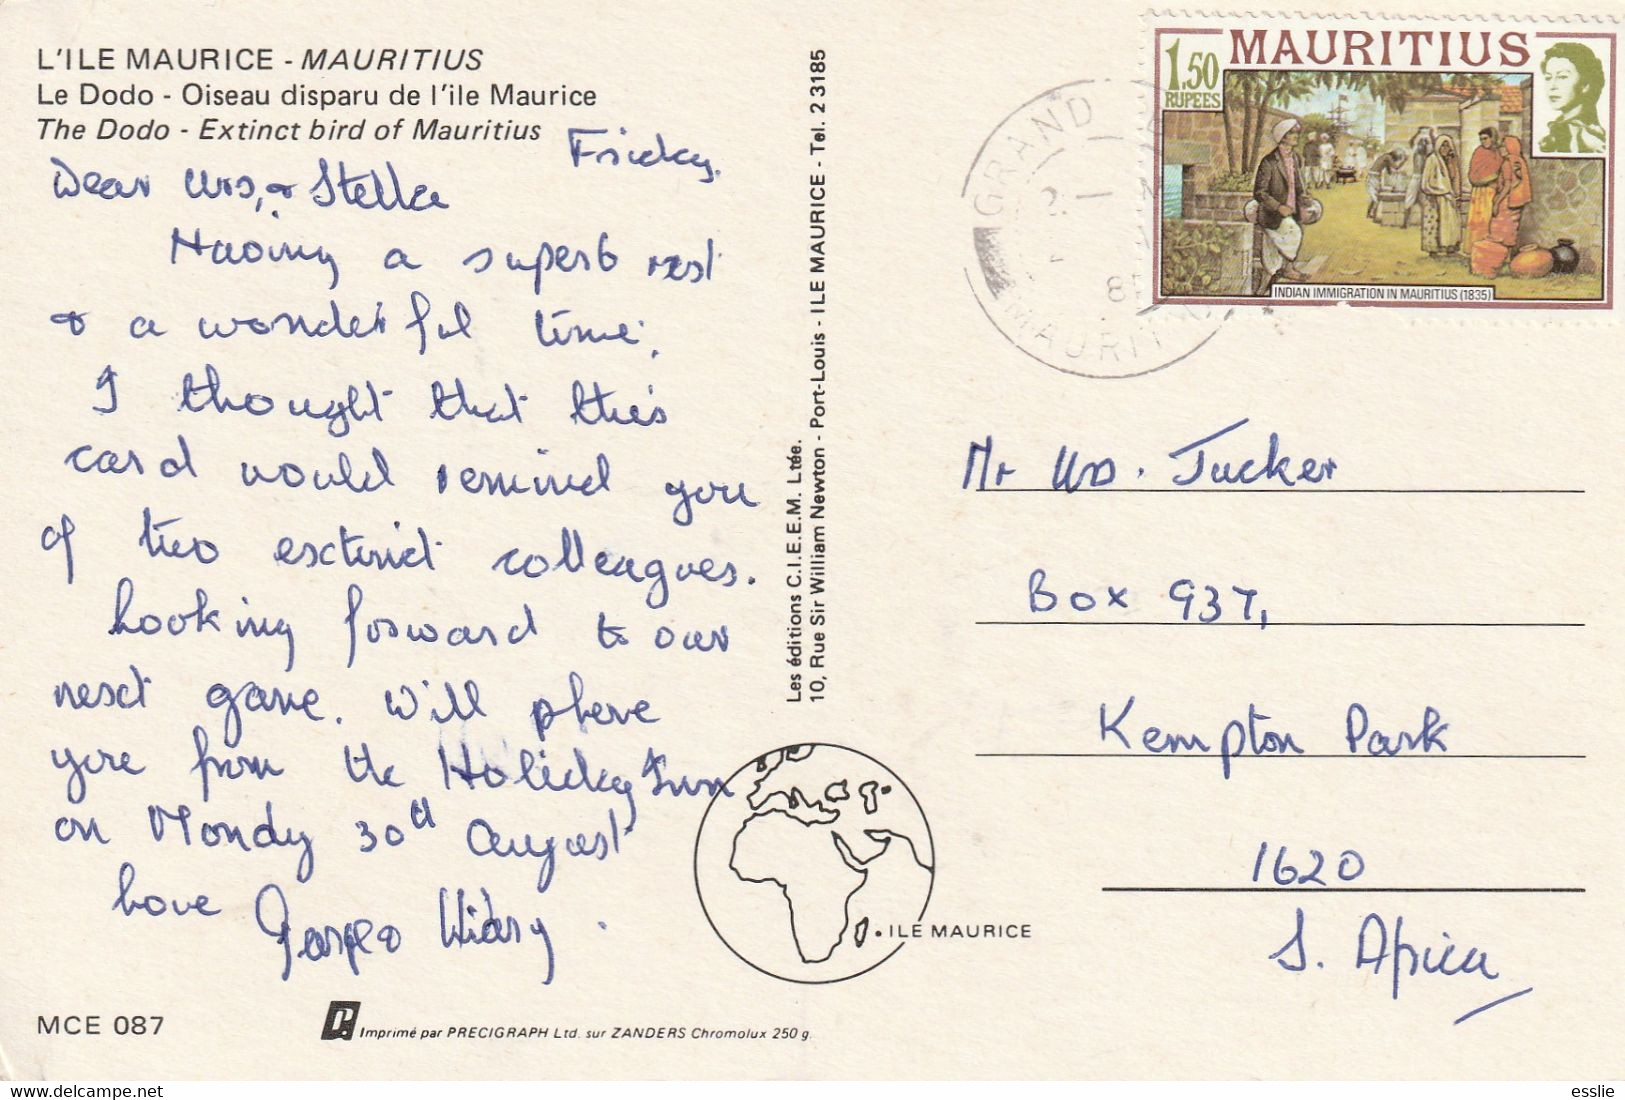 L'ILE MAURICE - MAURITIUS
Le Dodo - Oiseau disparu de l'ile Maurice
The Dodo - Extinct bird of Mauritius
Friday.
Dear Urs, & Stella
Having a superb rest
& a wonderful time.
I thought that this
card would remind you
of two exctinct colleagues.
Looking forward to our
next game. Will phone
you from the Holiday Inn
on Mondy 30th August
Love
MCE 087
Imprimé par PRECIGRAPH Ltd. sur ZANDERS Chromolux 250 g.
Les éditions C.I.E.E.M. Ltée.
10, Rue Sir William Newton - Port-Louis - ILE MAURICE - Tel. 2 3185
ILE MAURICE
GRAND
MAURIT
1.50
RUPEES
MAURITIUS
INDIAN IMMIGRATION IN MAURITIUS (1835)
Mr Urs. Tucker
Box 937,
Kempton Park
1620
S. Africa
esslie